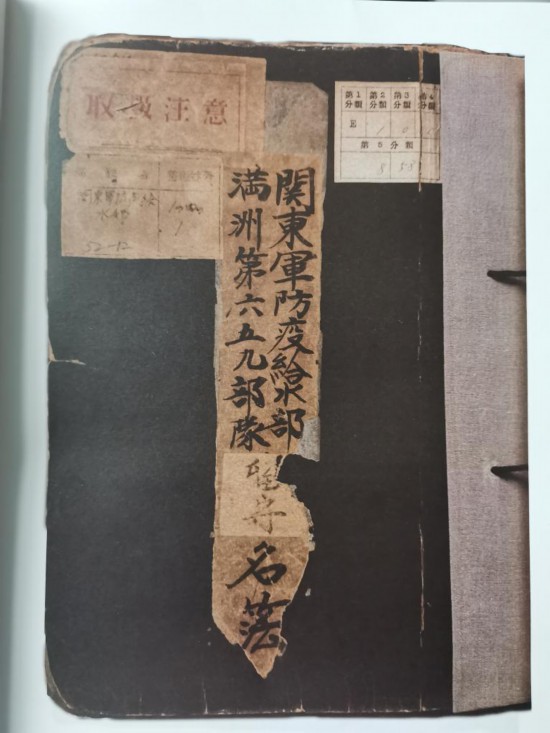 取扱注意
第1分類 第2分類 第3分類 第4分類
第5分類
52-12
関東軍防疫給水部
満洲第六五九部隊
留守
名簿